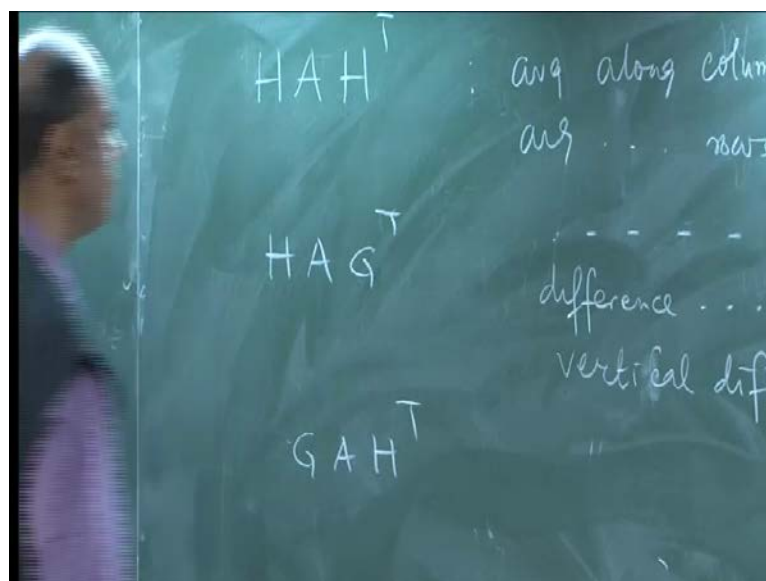 HAHᵀ : avg along colum
avg .... rows
HAGᵀ - - - - -
difference ....
vertical dif
GAHᵀ "